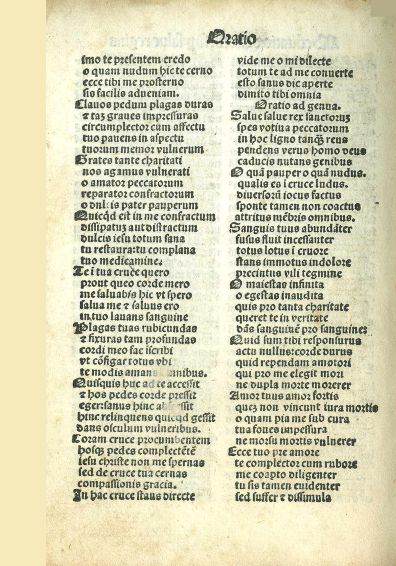 Oratio
imo te presentem credo
o quam nudum hic te cerno
ecce tibi me prosterno
sis facilis ad veniam.
Clauos pedum plagas duras
⁊ tas graues impressuras
circumplector cum affectu
tuo pauens in aspectu
tuorum memor vulnerum
Grates tante charitati
nos agamus vulnerati
o amator peccatorum
reparator confractorum
o dulcis pater pauperum
Quicqd est in me confractum
dissipatū aut distractum
dulcis iesu totum sana
tu restaura: tu complana
tuo medicamine.
Te ī tua cruce quero
prout queo corde mero
me saluabis hic vt spero
salua me ⁊ saluus ero
in tuo lauans sanguine
Plagas tuas rubicundas
⁊ fixuras tam profundas
cordi meo fac iscribi
vt cōfigar totus tibi
te modis amans omnibus.
Quisquis huc ad te accessit
⁊ hos pedes corde pressit
eger sanus hinc abscessit
hinc relinquens quicqd gessit
dans osculum vulneribus.
Coram cruce procumbentem
hosq; pedes complectētē
iesu christe non me spernas
sed de cruce tua cernas
compassionis gracia.
In hac cruce staus directe
vide me o mi dilecte
totum te ad me conuerte
esto sanus dic aperte
dimito tibi omnia
Oratio ad genua.
Salue salue rex sanctorum
spes votiua peccatorum
in hoc ligno tanq̄ reus
pendens verus homo deus
caducis nutans genibus
O quā pauper o quā nudus.
qualis es ī cruce ludus.
diuersorū iocus factus
sponte tamen non coactus
attritus mēbris omnibus.
Sanguis tuus abundāter
fusus fluit incessanter
totus lotus ī cruore
stans immotus in dolore
precintus vili tegmine
O maiestas infinita
o egestas inaudita
quis pro tanta charitate
queret te in veritate
dās sanguinē pro sanguine
Quid sum tibi responsurus
actu nullus: corde durus
quid rependam amatori
qui pro me elegit mori
ne dupla morte morerer
Amor tuus amor fortis
quez non vincunt iura mortis
o quam pia me sub cura
tua foues impessura
ne morsu mortis vulnerer
Ecce tuo pre amore
te complector cum rubore
me coapto diligenter
tu sis tamen euidenter
sed suffer ⁊ dissimula